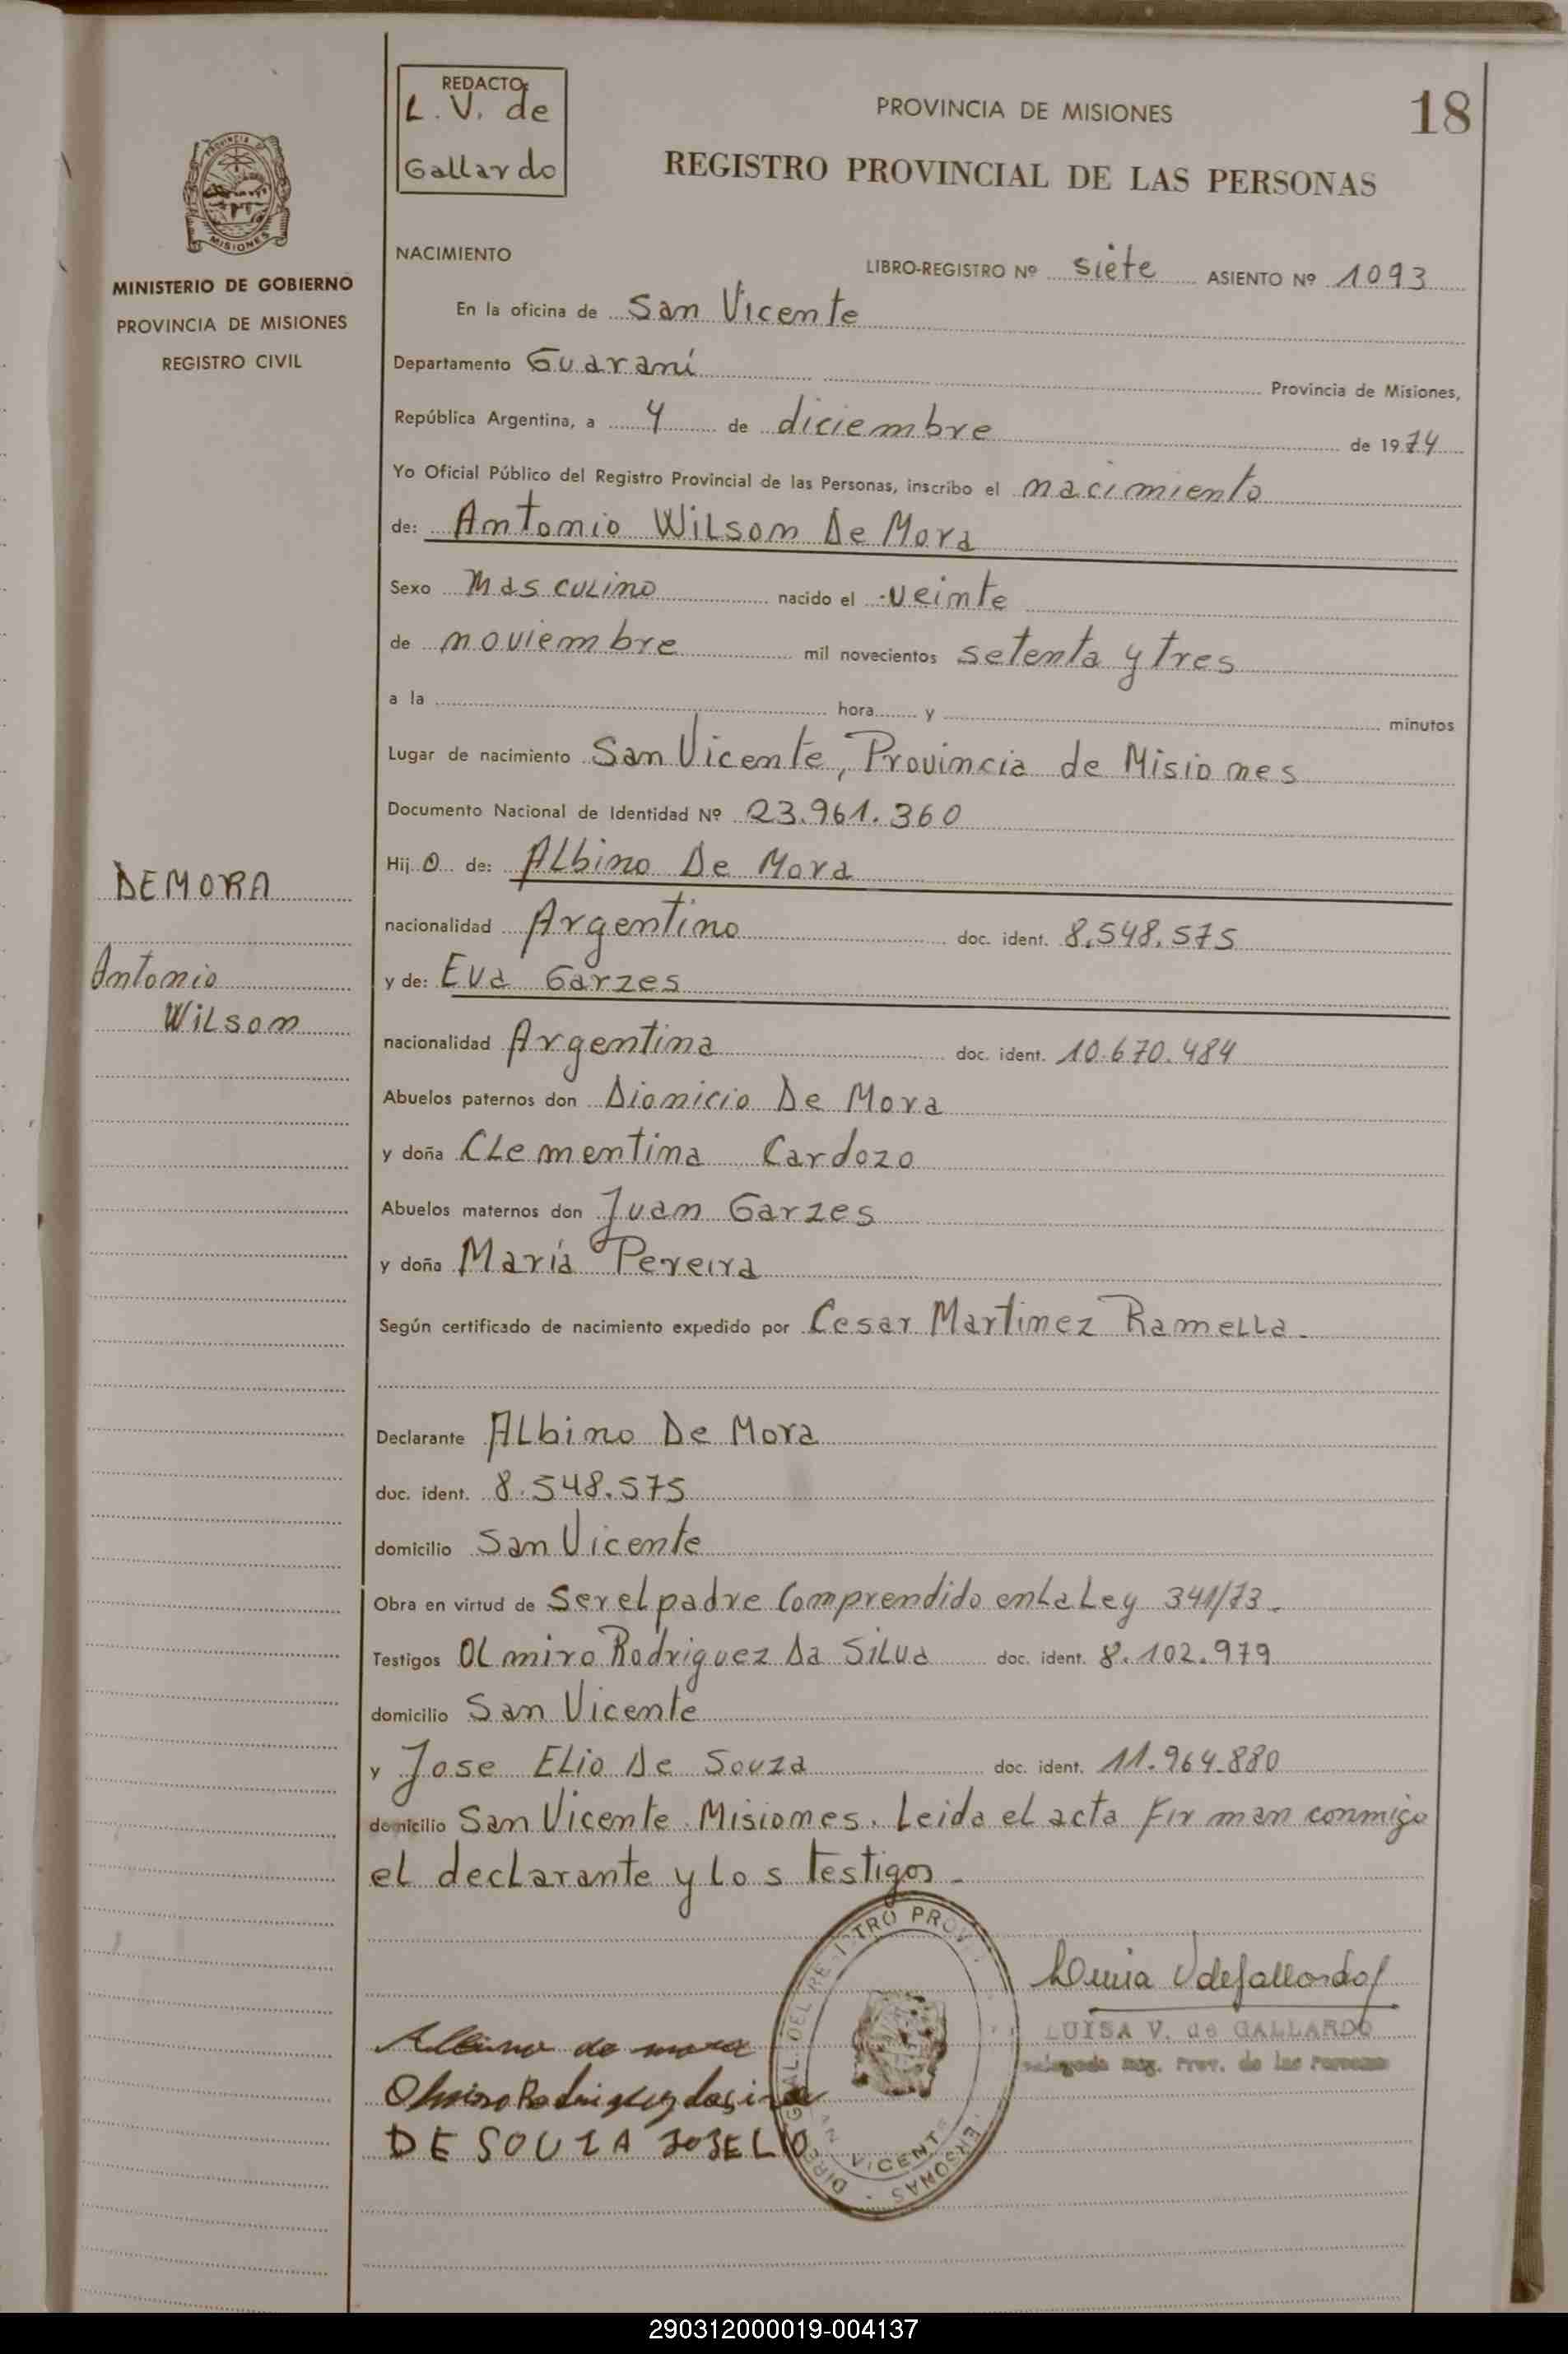 REDACTO:
L. V. de
Gallardo
PROVINCIA DE MISIONES
18
REGISTRO PROVINCIAL DE LAS PERSONAS
PROVINCIA DE
MISIONES
MINISTERIO DE GOBIERNO
PROVINCIA DE MISIONES
REGISTRO CIVIL
NACIMIENTO
LIBRO-REGISTRO Nº siete ASIENTO Nº 1093
En la oficina de San Vicente
Departamento Guaraní Provincia de Misiones,
República Argentina, a 4 de diciembre de 1974
Yo Oficial Público del Registro Provincial de las Personas, inscribo el nacimiento
de: Antonio Wilson De Mora
Sexo Masculino nacido el veinte
de noviembre mil novecientos setenta y tres
a la hora y minutos
Lugar de nacimiento San Vicente, Provincia de Misiones
Documento Nacional de Identidad Nº 23.961.360
Hij o de: Albino De Mora
nacionalidad Argentino doc. ident. 8.548.575
y de: Eva Garzes
nacionalidad Argentina doc. ident. 10.670.484
Abuelos paternos don Dionicio De Mora
y doña Clementina Cardozo
Abuelos maternos don Juan Garzes
y doña María Pereira
Según certificado de nacimiento expedido por Cesar Martinez Ramella.
Declarante Albino De Mora
doc. ident. 8.548.575
domicilio San Vicente
Obra en virtud de Ser el padre Comprendido en la Ley 341/73.
Testigos Olmiro Rodriguez Da Silva doc. ident. 8.102.979
domicilio San Vicente
y Jose Elio De Souza doc. ident. 11.964.880
domicilio San Vicente Misiones. Leida el acta firman conmigo
el declarante y los testigos.
DEMORA
Antonio
Wilson
LUISA V. de GALLARDO
Reg. Prov. de las Personas
Albino de mora
DE SOUZA JOSELIO
VICENTE
290312000019-004137